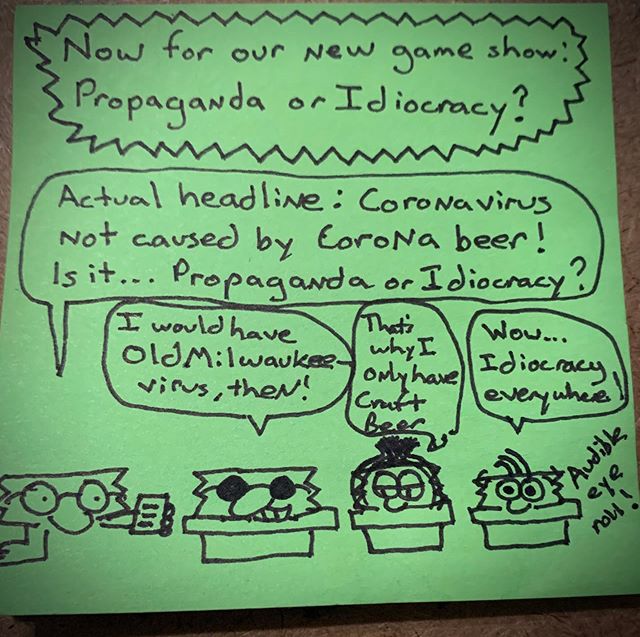 Now for our new game show:
Propaganda or Idiocracy?
Actual headline: Coronavirus
not caused by Corona beer!
Is it... Propaganda or Idiocracy?
I would have
Old Milwaukee
virus, then!
That's
why I
only have
Craft
Beer
Wow...
Idiocracy
everywhere!
Audible
eye
roll!